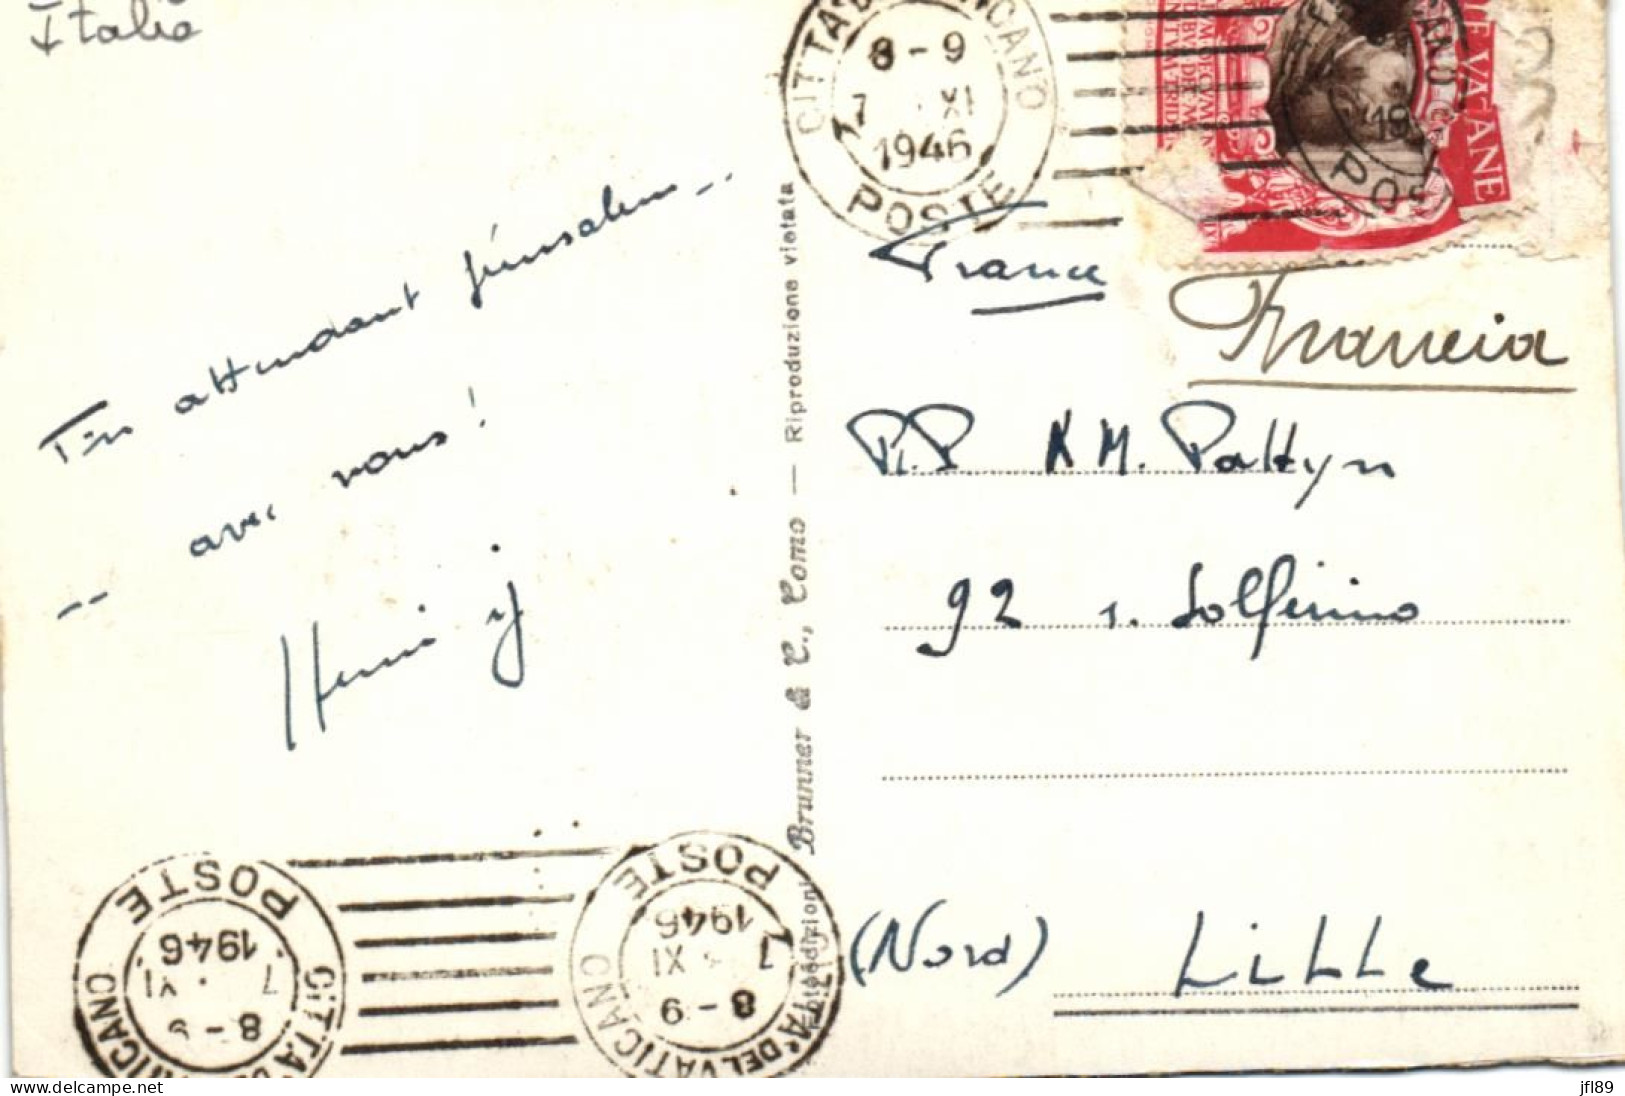 Italie
En attendant Jérusalem --
-- avec vous !
Henri
CITTA' DEL VATICANO
8 - 9
7 XI
1946
POSTE
VATANE
POS
France
Francia
R.P. M. Pattyn
92 r. Solférino
(Nord) Lille
Brunner & C., Como — Riproduzione vietata
Fotoedizioni
CITTA' DEL VATICANO
8 - 9
7 . XI
1946
POSTE
CITTA' DEL VATICANO
8 - 9
7 XI
1946
POSTE
www.delcampe.net
jfl89